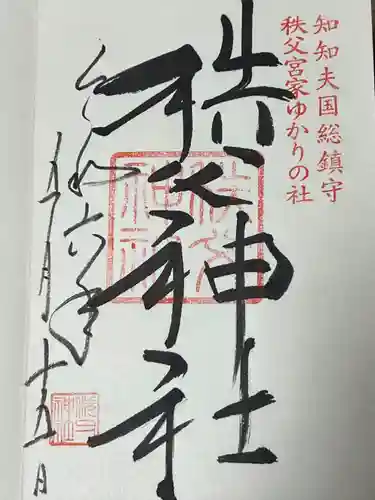 知知夫国総鎮守
秩父宮家ゆかりの社
秩父神社
令和六年
月十五日
秩父神社